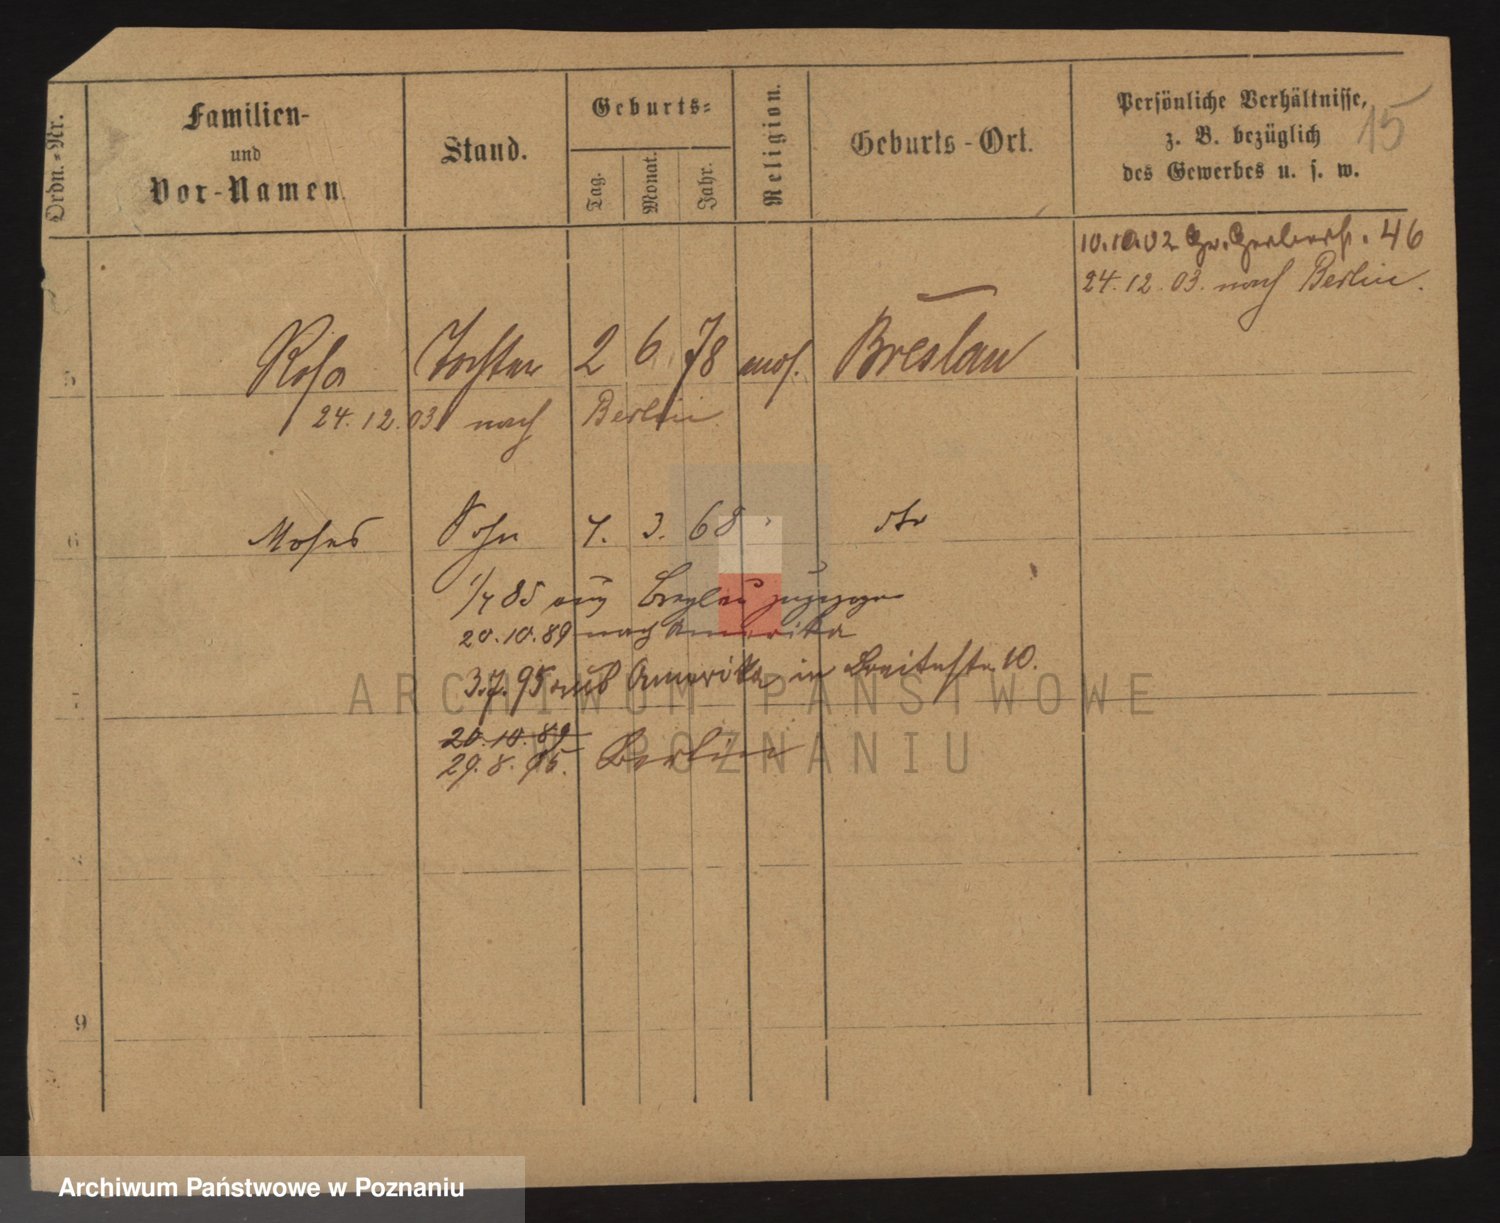 Ordn.-Nr.
Familien- und Vor-Namen.
Stand.
Geburts-
Tag.
Monat.
Jahr.
Religion.
Geburts-Ort.
Persönliche Verhältnisse,
z. B. bezüglich
des Gewerbes u. s. w.
15
10.10.02 Gr. Gerberst. 46
24.12.03. nach Berlin.
5 Rosa Tochter 2 6 78 mos. Breslau
24.12.03 nach Berlin
6 Moses Sohn 7. 3. 68 dto
1/7 85 aus Breslau zugezogen
20.10.89 nach Amerika
3.7.95 aus Amerika in Breitestr. 10.
20.10.89
29.8.95. Berlin
9
ARCHIWUM PAŃSTWOWE
W POZNANIU
Archiwum Państwowe w Poznaniu